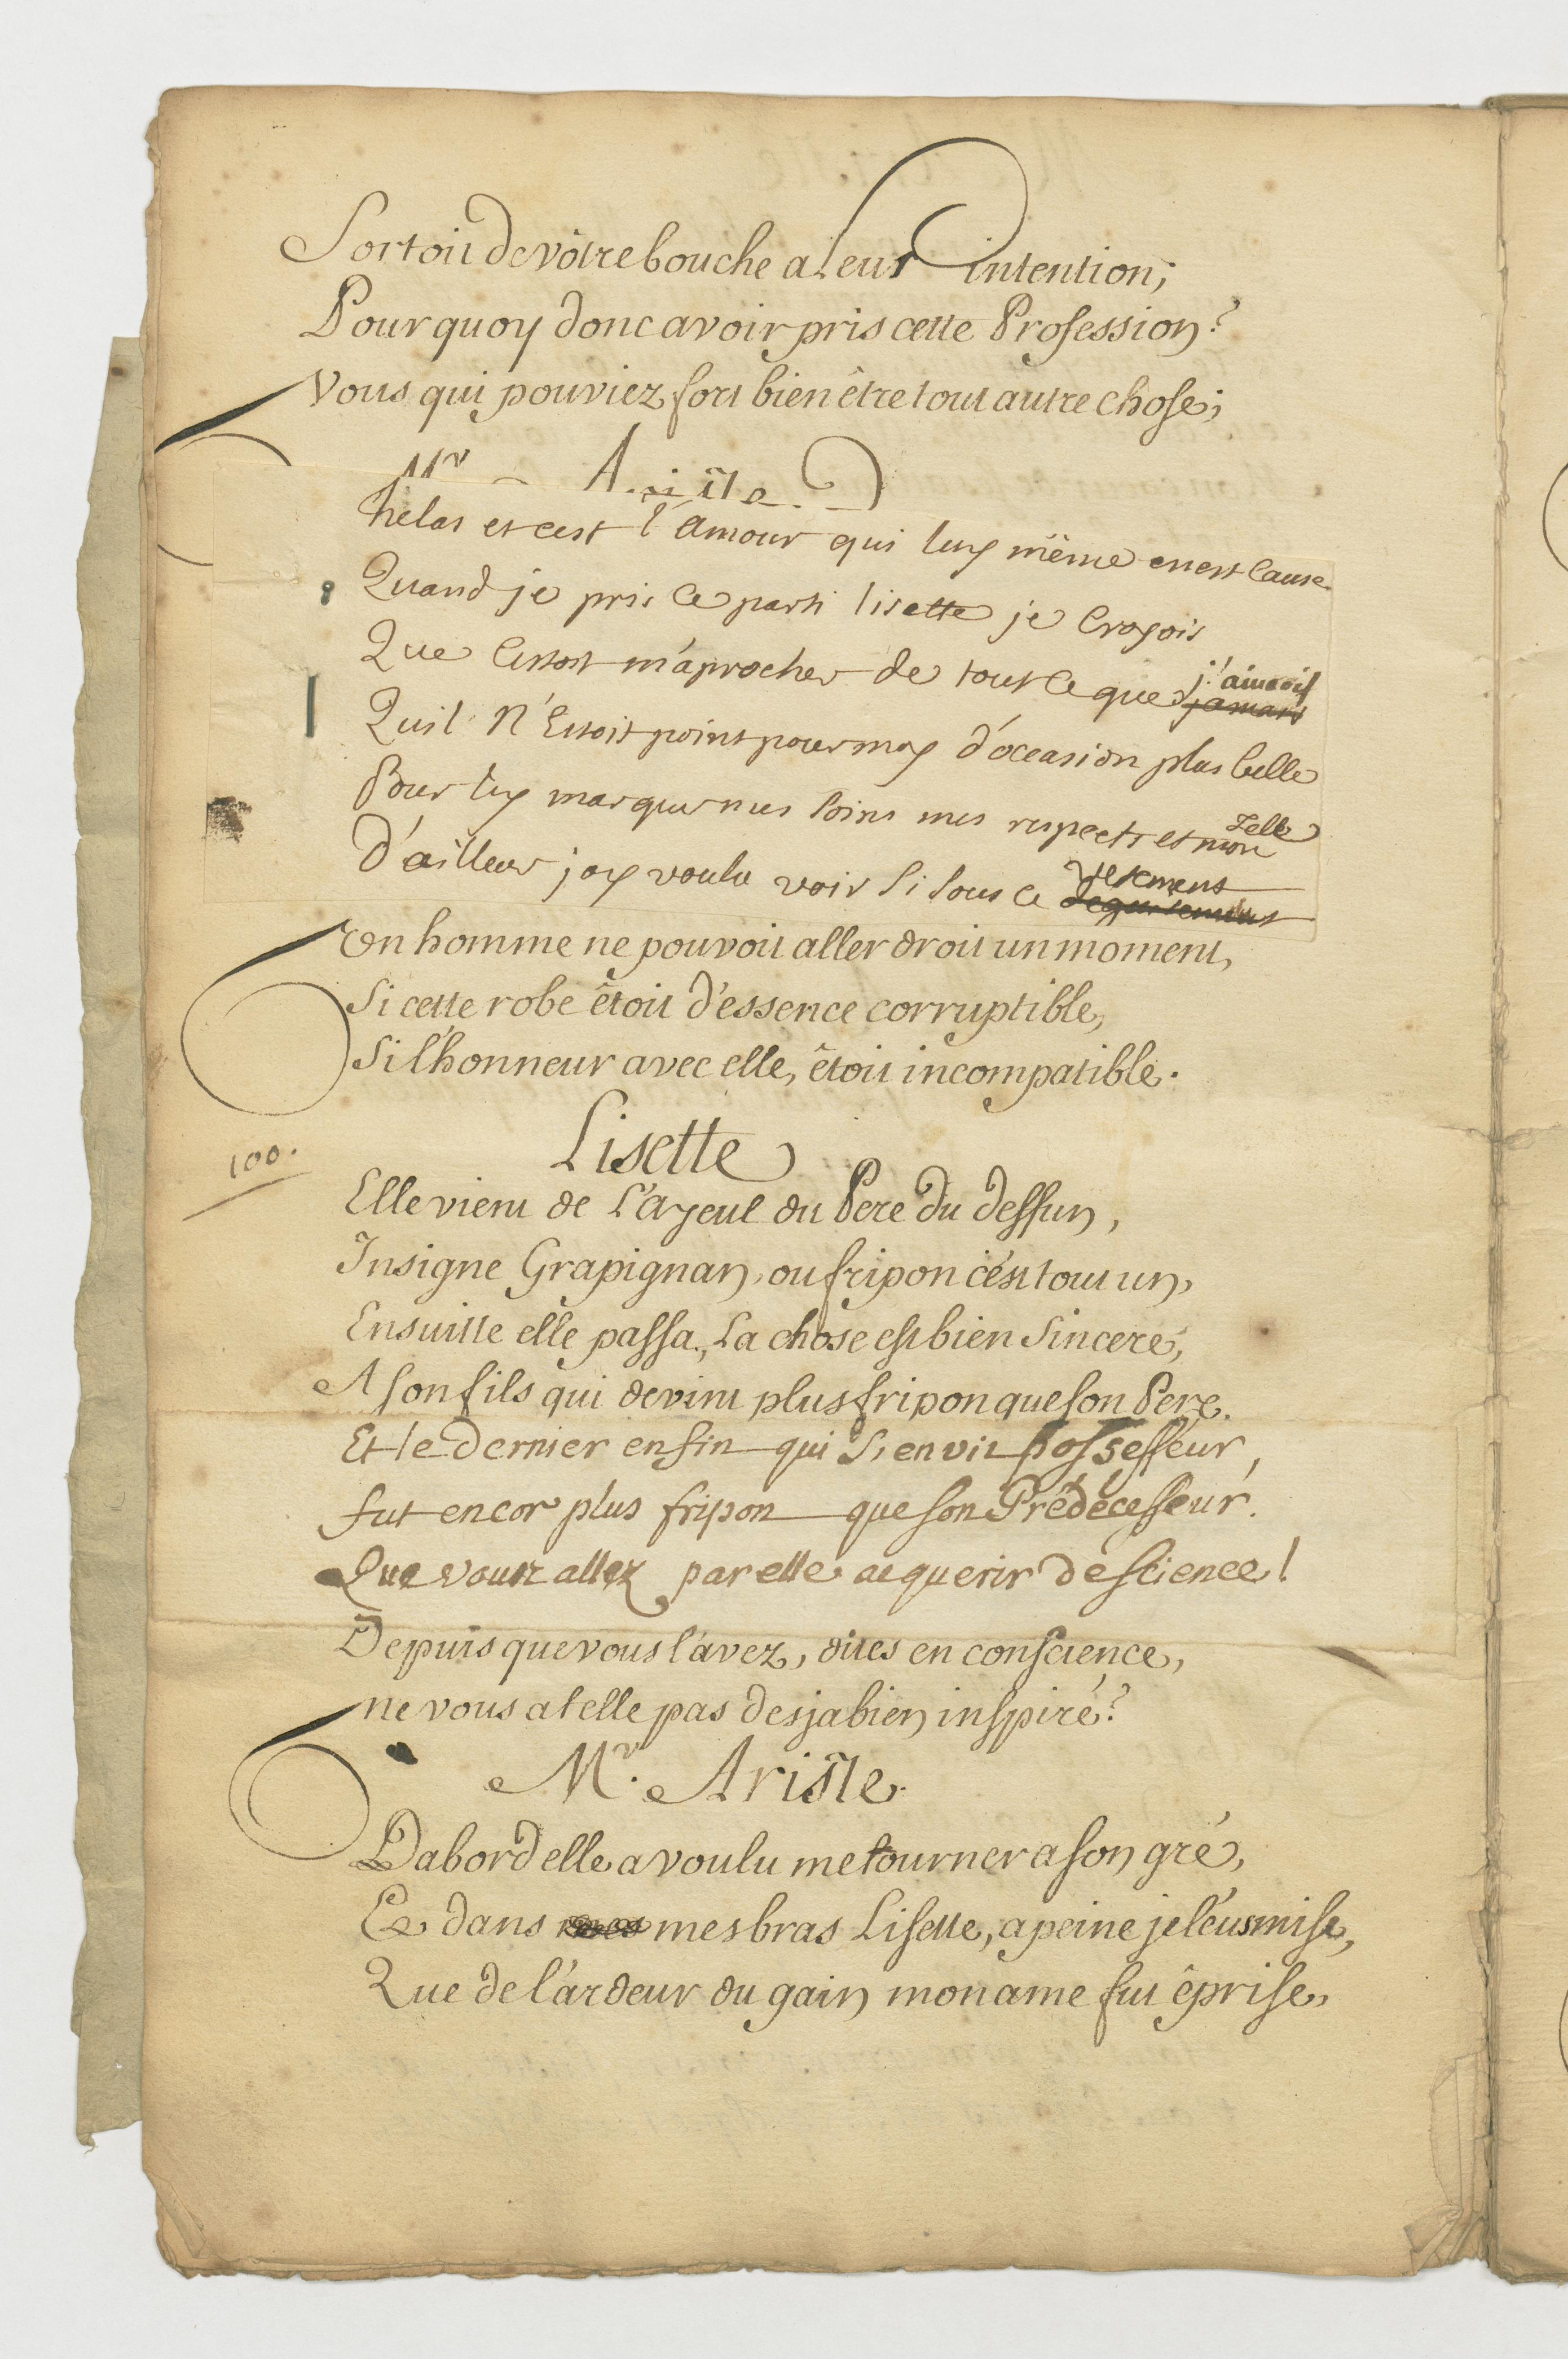 Sortoit de vôtre bouche a leur intention;
Pourquoy donc avoir pris cette Profession?
Vous qui pouviez fort bien être tout autre chose;
Mr Ariste.
helas et cest l'amour qui luy même en est Cause
Quand je pris ce parti lisette je Croyois
Que Cestoit m'aprocher de tout ce que j'aimois jamais
Quil N'Estoit point pour moy d'occasion plus belle
Pour luy marquer mes soins mes respects et mon zelle
D'ailleurs j'ay voulu voir si sous ce vetement deguisement
Un homme ne pouvoit aller droit un moment,
Si cette robe êtoit d'essence corruptible,
Si l'honneur avec elle, êtoit incompatible.
Lisette
100.
Elle vient de L'ayeul du Pere du deffun,
Insigne Grapignan, ou fripon c'est tout un,
Ensuitte elle passa, La chose est bien Sincere,
A son fils qui devint plus fripon que son Pere.
Et le dernier enfin qui s'en vit possesseur,
fut encor plus fripon que son Prédécesseur.
Que vous allez par elle acquerir de science!
Depuis que vous l'avez, dites en conscience,
ne vous a telle pas desja bien inspiré?
Mr. Ariste.
Dabord elle a voulu me tourner a son gré,
Et dans mes bras Lisette, a peine je l'eus mise,
Que de l'ardeur du gain mon ame fut êprise,